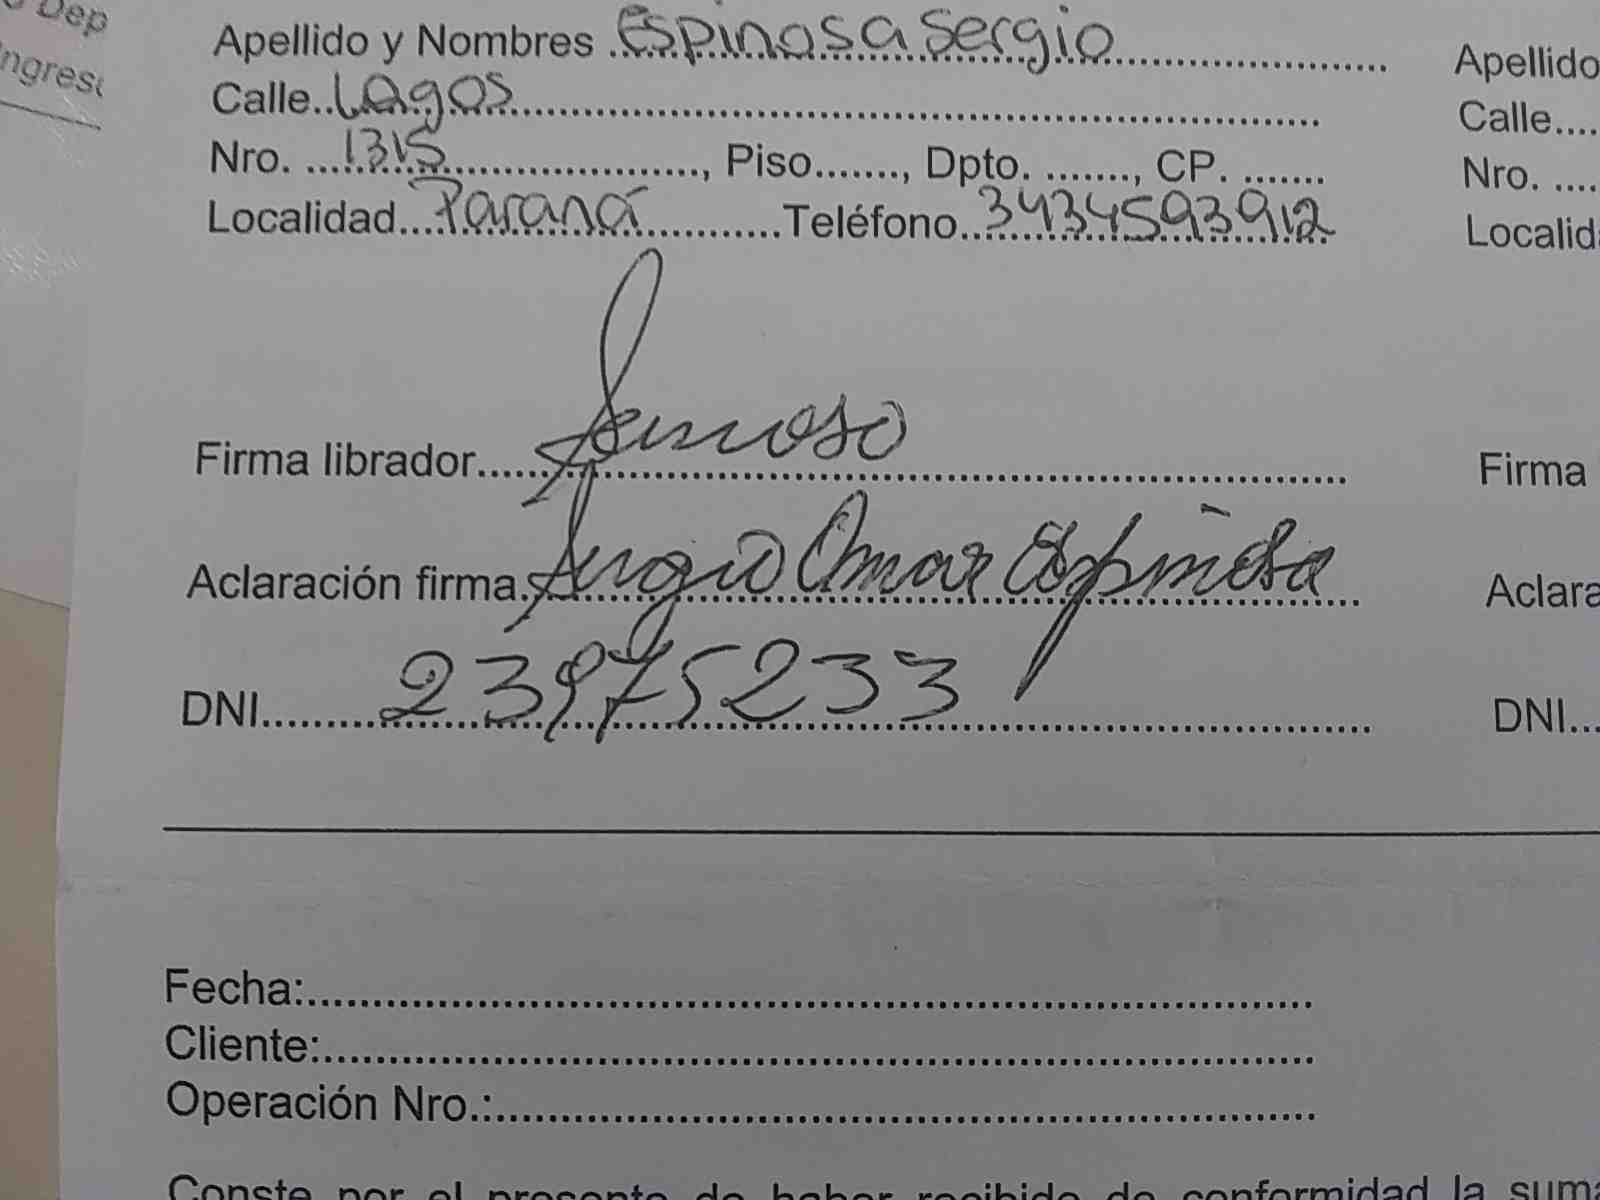 Dep
Ingres
Apellido y Nombres Espinosa Sergio
Calle Lagos
Nro. 1315, Piso......., Dpto. ......., CP. .......
Localidad Paraná Teléfono 3434593912
Firma librador
Aclaración firma Sergio Omar Espinosa
DNI 23975233
Fecha:
Cliente:
Operación Nro.:
Conste por el presente de haber recibido de conformidad la suma
Apellido
Calle....
Nro. ....
Localid
Firma
Aclara
DNI...